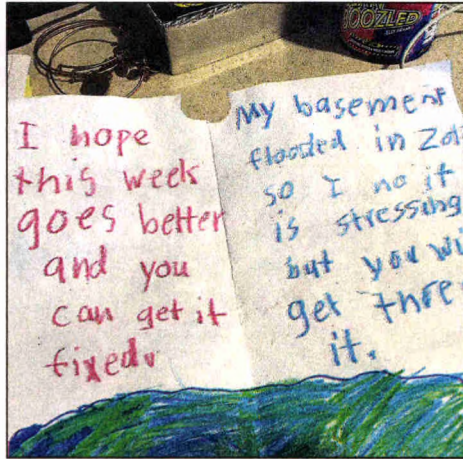 BOOZLED
I hope
this week
goes better
and you
can get it
fixed.
My basement
flooded in
so I no it
is stressing
but you
get
it.